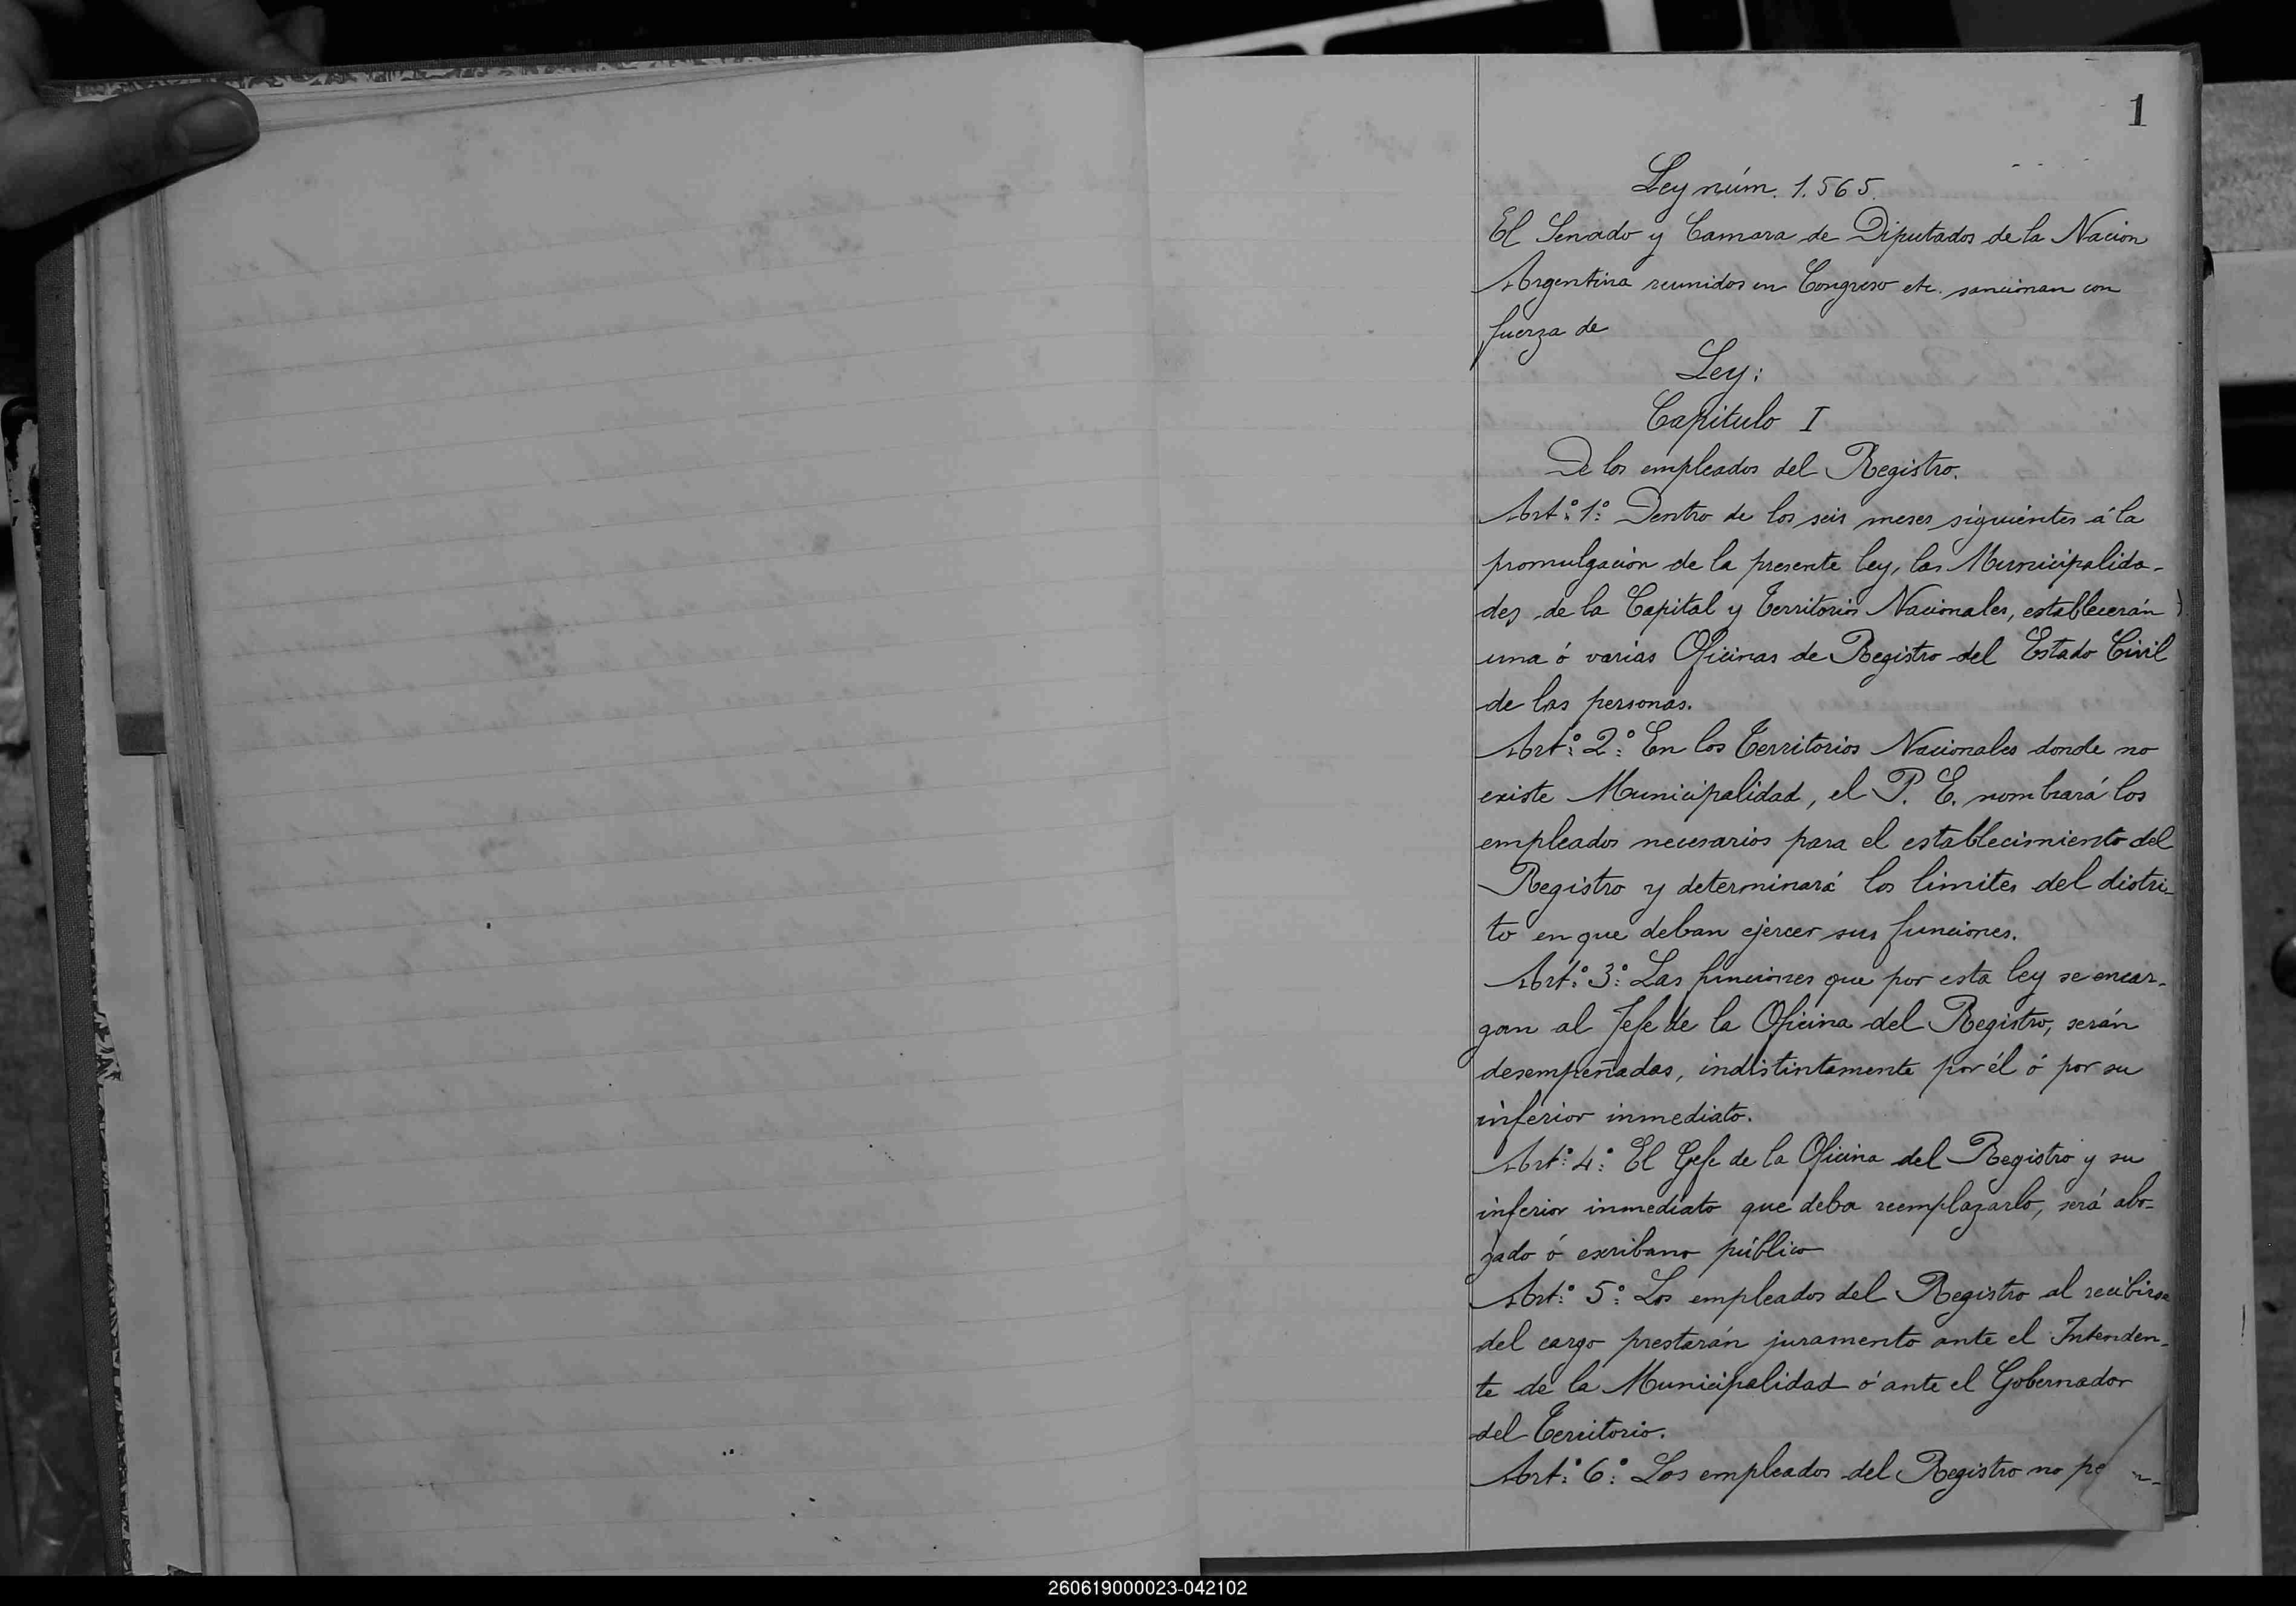 1
Ley núm. 1.565.
El Senado y Camara de Diputados de la Nacion
Argentina reunidos en Congreso etc. sancionan con
fuerza de
Ley:
Capitulo I
De los empleados del Registro.
Art.º 1º Dentro de los seis meses siguientes á la
promulgación de la presente ley, las Municipalida-
des de la Capital y Territorios Nacionales, establecerán
una ó varias Oficinas de Registro del Estado Civil
de las personas.
Art.º 2º En los Territorios Nacionales donde no
existe Municipalidad, el P. E. nombrará los
empleados necesarios para el establecimiento del
Registro y determinará los límites del distri-
to en que deban ejercer sus funciones.
Art.º 3º Las funciones que por esta ley se encar-
gan al Jefe de la Oficina del Registro, serán
desempeñadas, indistintamente por él ó por su
inferior inmediato.
Art.º 4º El Gefe de la Oficina del Registro y su
inferior inmediato que deba reemplazarlo, será abo-
gado ó escribano público
Art.º 5º Los empleados del Registro al recibirse
del cargo prestarán juramento ante el Intenden-
te de la Municipalidad ó ante el Gobernador
del Territorio.
Art.º 6º Los empleados del Registro no
260619000023-042102